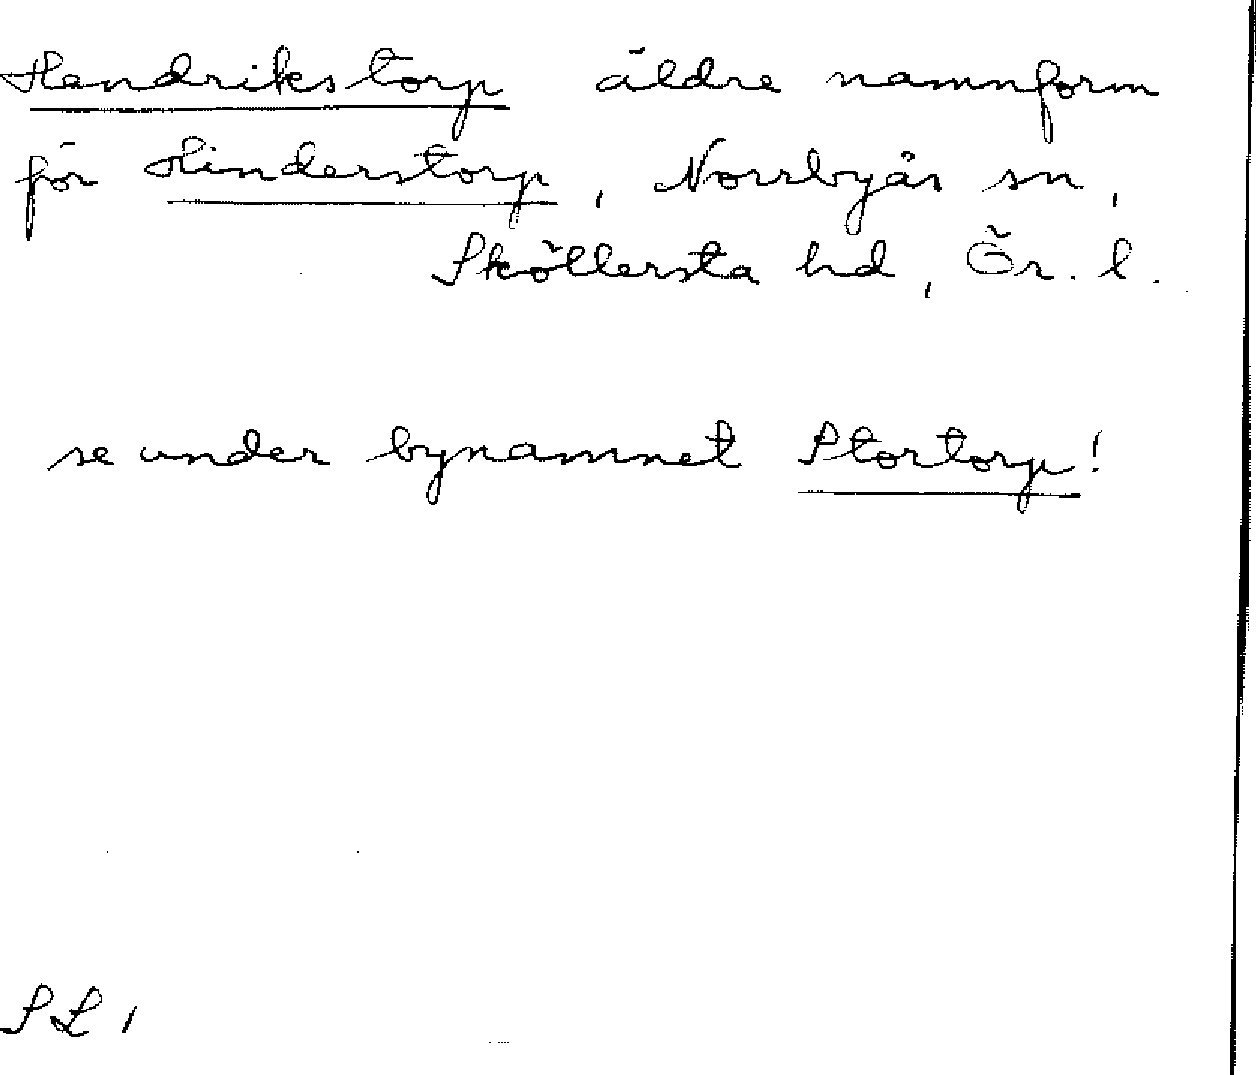 Hendrikstorp äldre namnform
för Hinderstorp, Norrbyås sn,
Sköllersta hd, Ör. l.
se under bynamnet Stortorp!
SL1